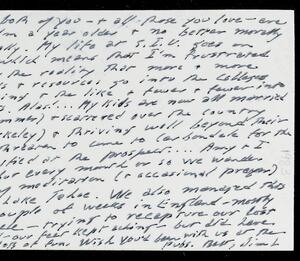 both of you - & all those you love - are
I'm a year older & no better morally
My life at S.I.U. goes on
which means that I'm frustrated
the reality that more & more
& resources go into the colleges
the like & fewer & fewer into
Alas!... My kids are now all married
& scattered over the country
& thriving well beyond their
threaten to come to Carbondale for the
at the prospect.... Amy & I
every month or so we wander
meditation (& occasional prayer)
Lake Tahoe. We also managed this
couple of weeks in England - mostly
trying to recapture our lost
our feet kept aching - but did have
of fun. Wish you'd been with us at the
pubs. Best, Jim L
1983